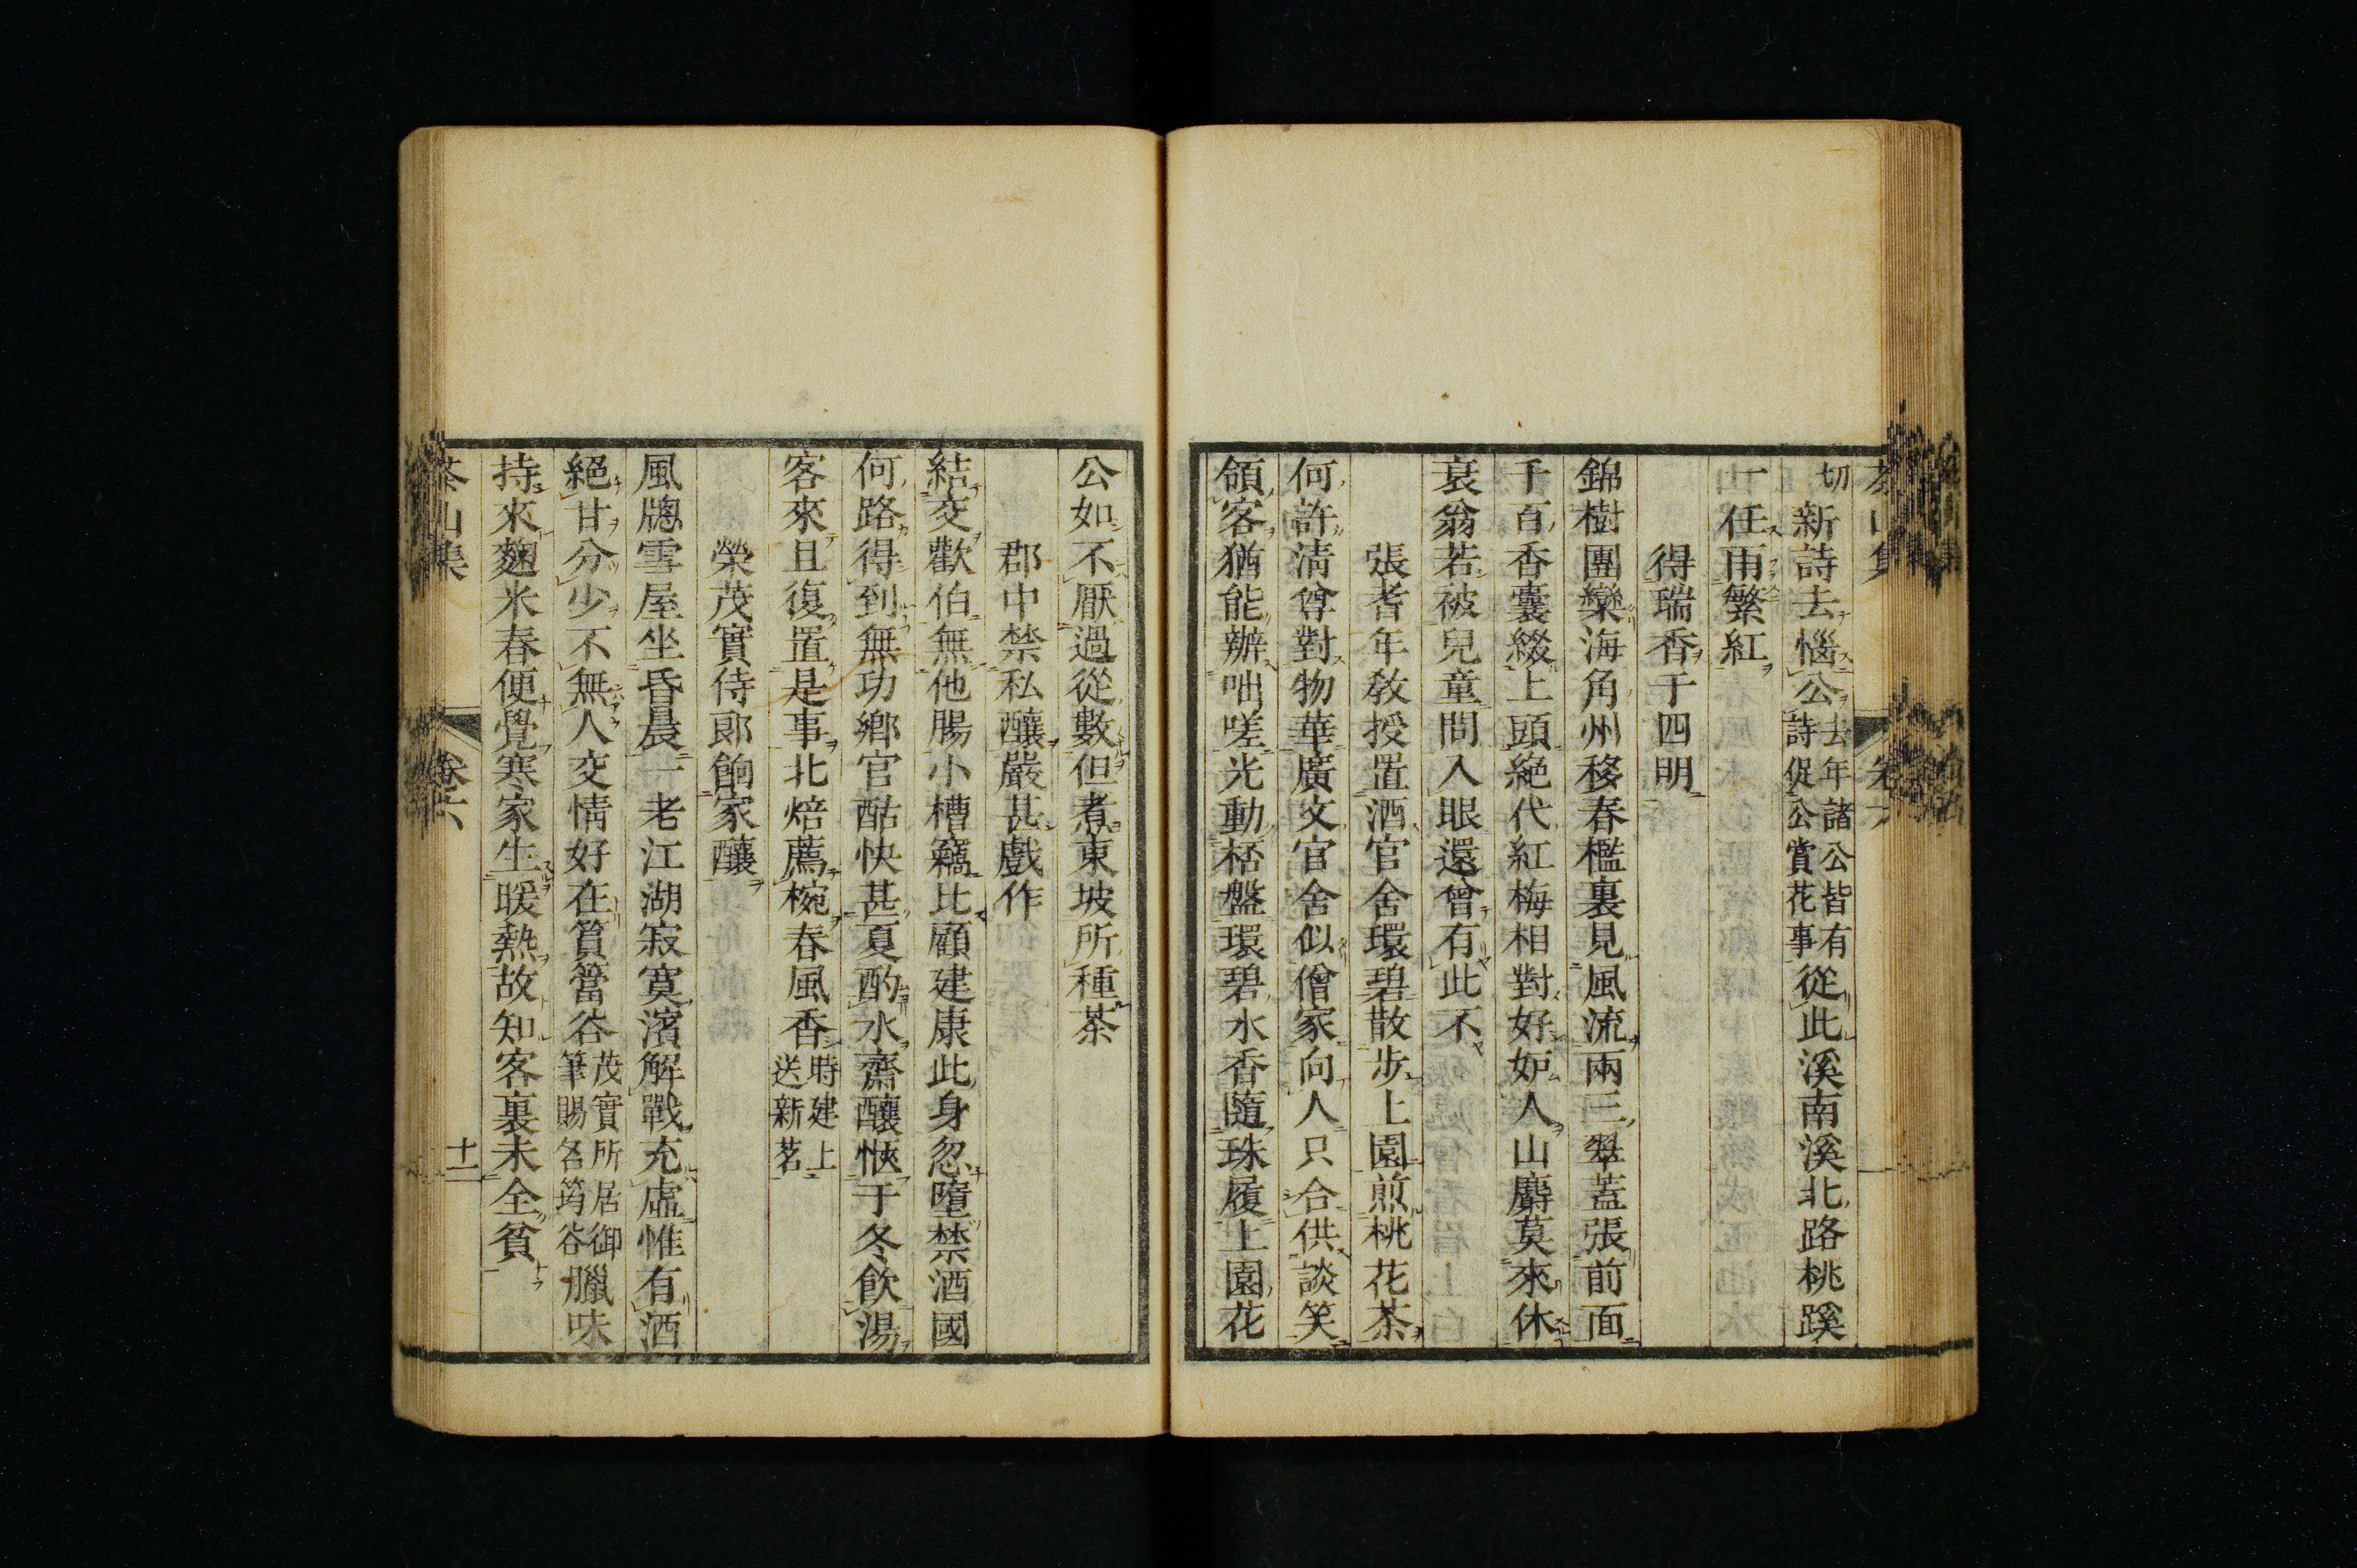 切新詩去惱公去年諸公皆有詩促公賞花事從此溪南溪北路桃蹊
一任雨繁紅
得瑞香于四明
錦樹團欒海角州移春檻裏見風流兩三翠蓋張前面
千百香囊綴上頭絕代紅梅相對好妒人山麝莫來休
衰翁若被兒童問入眼還曾有此不
張耆年教授置酒官舍環碧散步上園煎桃花茶
何許淸尊對物華廣文官舍似僧家向人只合供談笑
領客猶能辦咄嗟光動桮盤環碧水香隨珠履上園花
公如不厭過從數但煮東坡所種茶
郡中禁私釀嚴甚戲作
結交歡伯無他腸小槽竊比顧建康此身忽墮禁酒國
何路得到無功鄉官酤快甚夏酌水齋釀愜于冬飲湯
客來且復置是事北焙薦椀春風香時建上送新茗
榮茂實侍郎餉家釀
風牕雪屋坐昏晨一老江湖寂寞濱解戰充虛惟有酒
絕甘分少不無人交情好在篔簹谷茂實所居御筆賜名筠谷臘味
持來麴米春便覺寒家生暖熱故知客裏未全貧
茶山集 卷六 十一